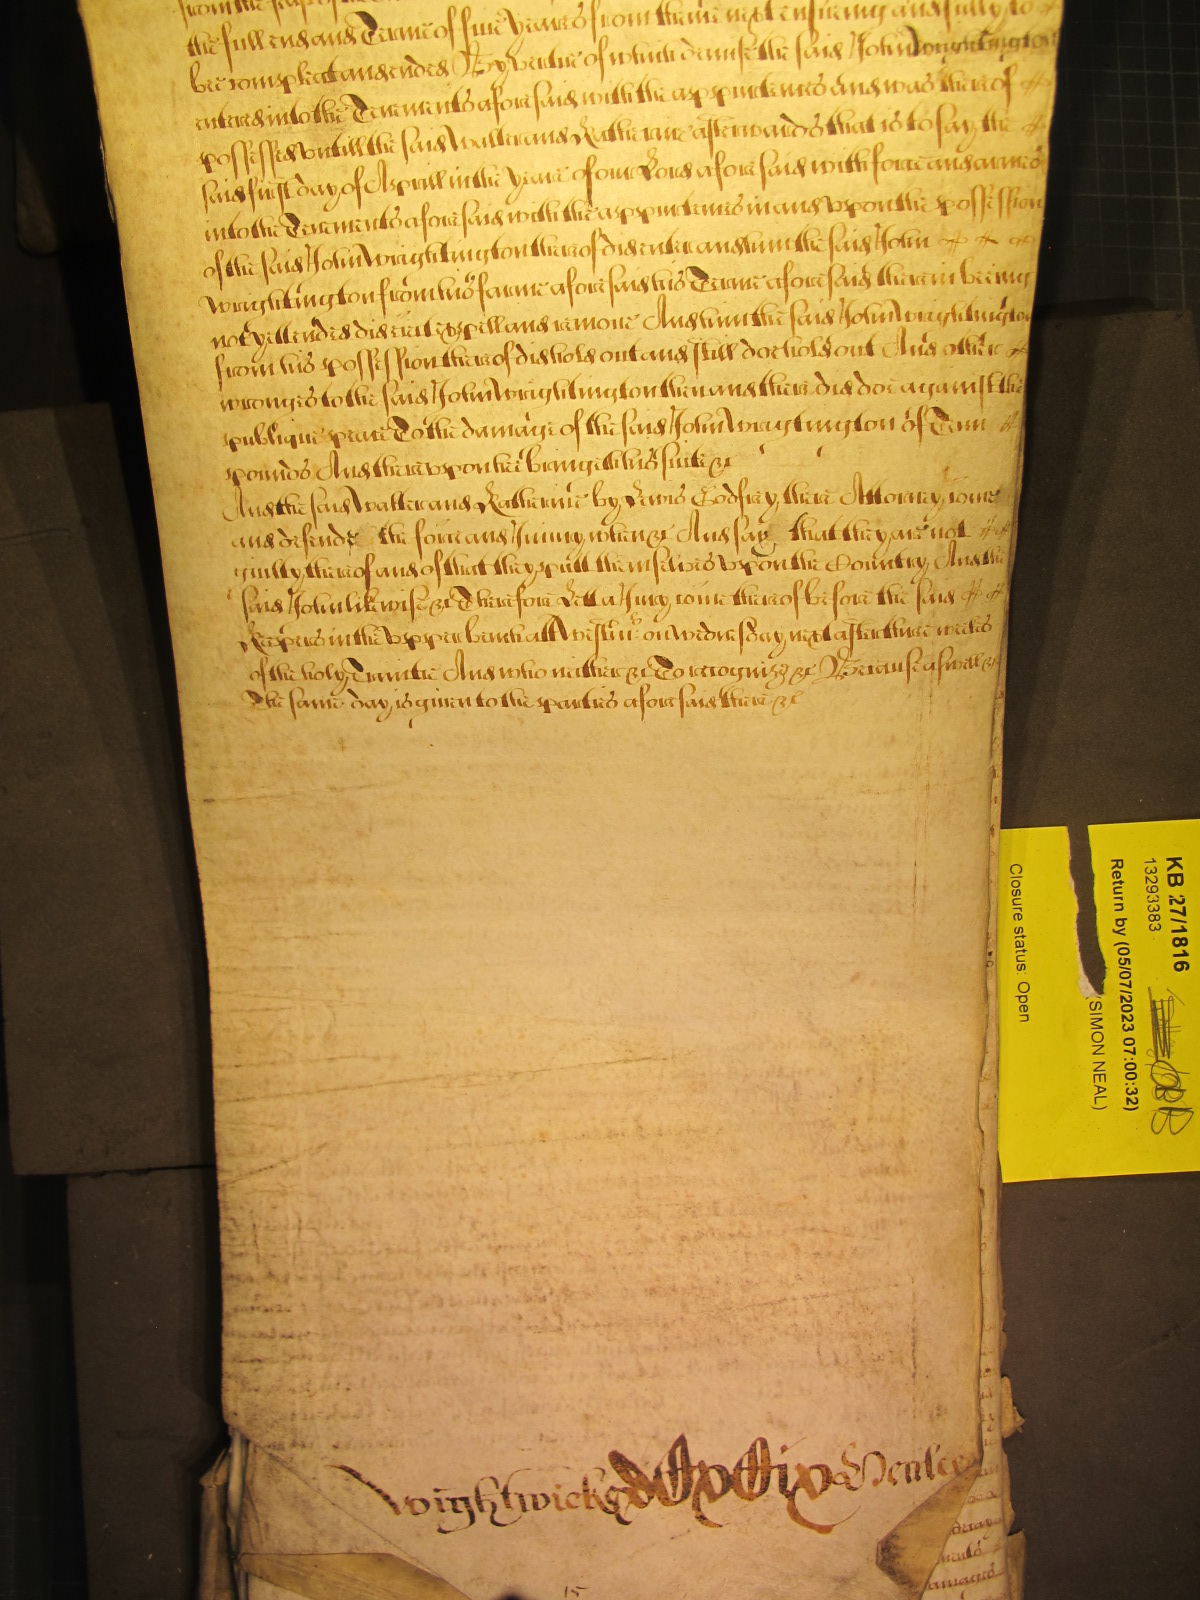 the full end and Terme of five yeares from thence next ensuing and fully to
bee compleat and ended By vertue of which demise the said John Wrightington
entred into the Tenements aforesaid with the appurtenncs and was thereof
possessed untill the said Walter and Katherine afterwards that is to say the
said first day of Aprill in the yeare of our Lord aforesaid with force and armes
into the Tenements aforesaid with the appurtenncs in and upon the possession
of the said John Wrightington thereof did enter and him the said John
Wrightington from his farme aforesaid his Terme aforesaid therein being
not yett ended did eiect expell and remove And him the said John Wrightington
from his possession thereof did hold out and still doe hold out And other
wronges to the said John Wrightington then and there did doe against the
publique peace To the damage of the said John Wrightington of Tenn
pounds And thereupon hee bringeth his suite &c
And the said Walter and Katherine by Lewis Godfrey there Attorney come
and defende the force and Iniury when &c And say that they are not
guilty thereof and of that they putt themselves upon the Country And the
said John likewise &c Therefore Lett a Jury come thereof before the said
Keepers in the upper bench att Westm on wednesday next after three weekes
of the holy Trinitie And who neither &c To recogniz &c Because aswell &c
The same day is given to the parties aforesaid there &c
Wightwicke Henley
15
KB 27/1816
13293383
Return by (05/07/2023 07:00:32)
(SIMON NEAL)
Closure status: Open